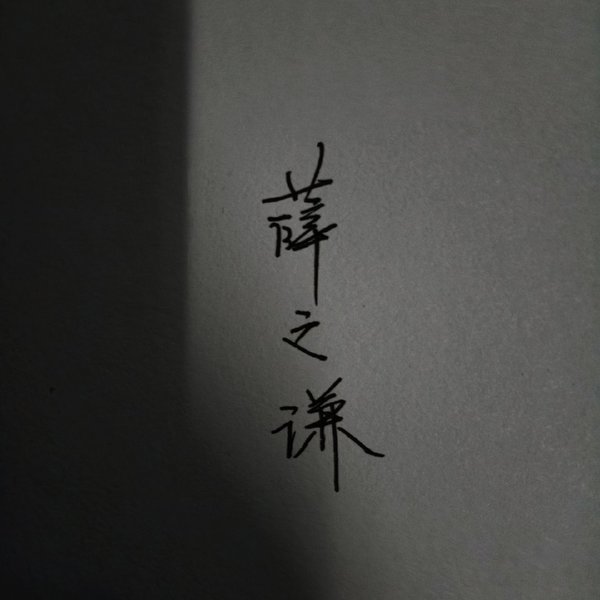 薛之谦